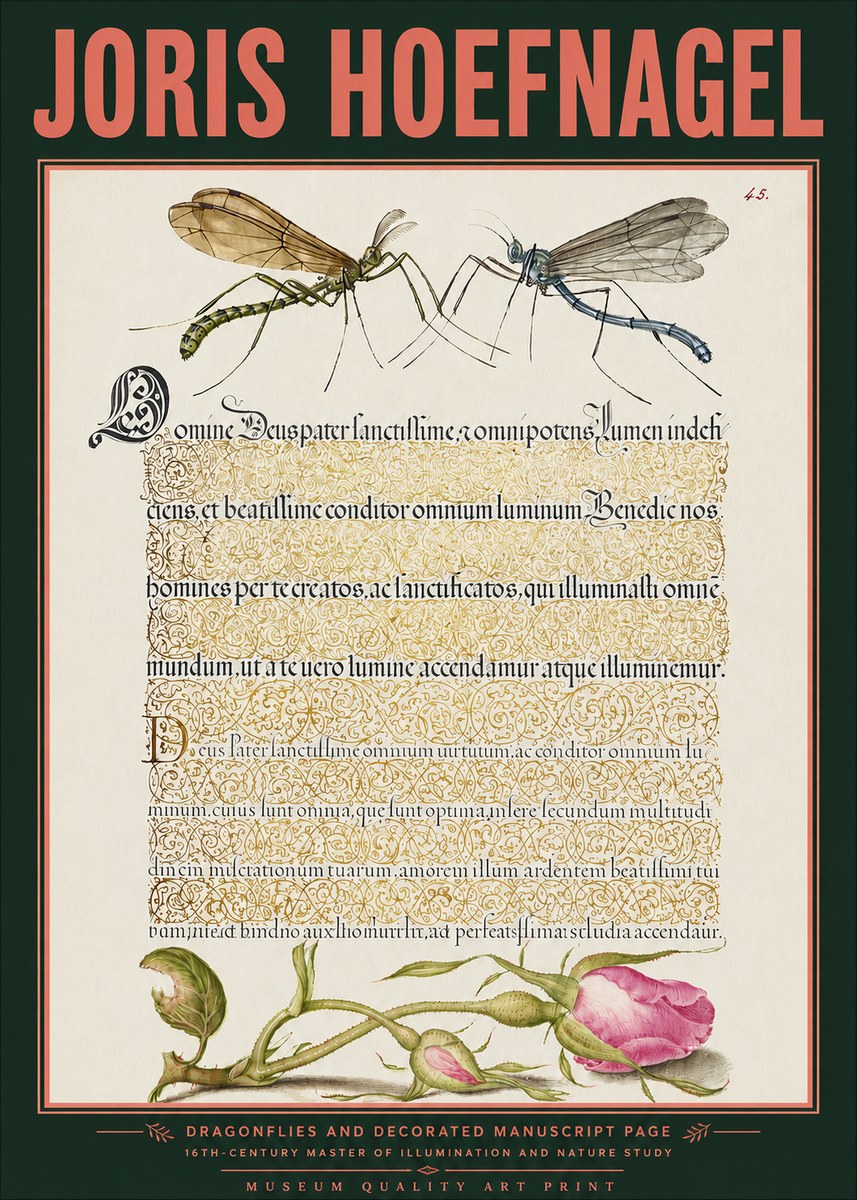 JORIS HOEFNAGEL
45.
Domine Deus pater sanctissime, ⁊ omnipotens Lumen indefi
ciens, et beatissime conditor omnium luminum Benedic nos
homines per te creatos, ac sanctificatos, qui illuminasti omnē
mundum, ut a te uero lumine accendamur atque illuminemur.
Deus Pater sanctissime omnium uirtutum, ac conditor omnium lu
minum, cuius sunt omnia, que sunt optima, insere secundum multitudi
tuarum, amorem illum ardentem beatissimi tui
accendaur.
DRAGONFLIES AND DECORATED MANUSCRIPT PAGE
16TH-CENTURY MASTER OF ILLUMINATION AND NATURE STUDY
MUSEUM QUALITY ART PRINT